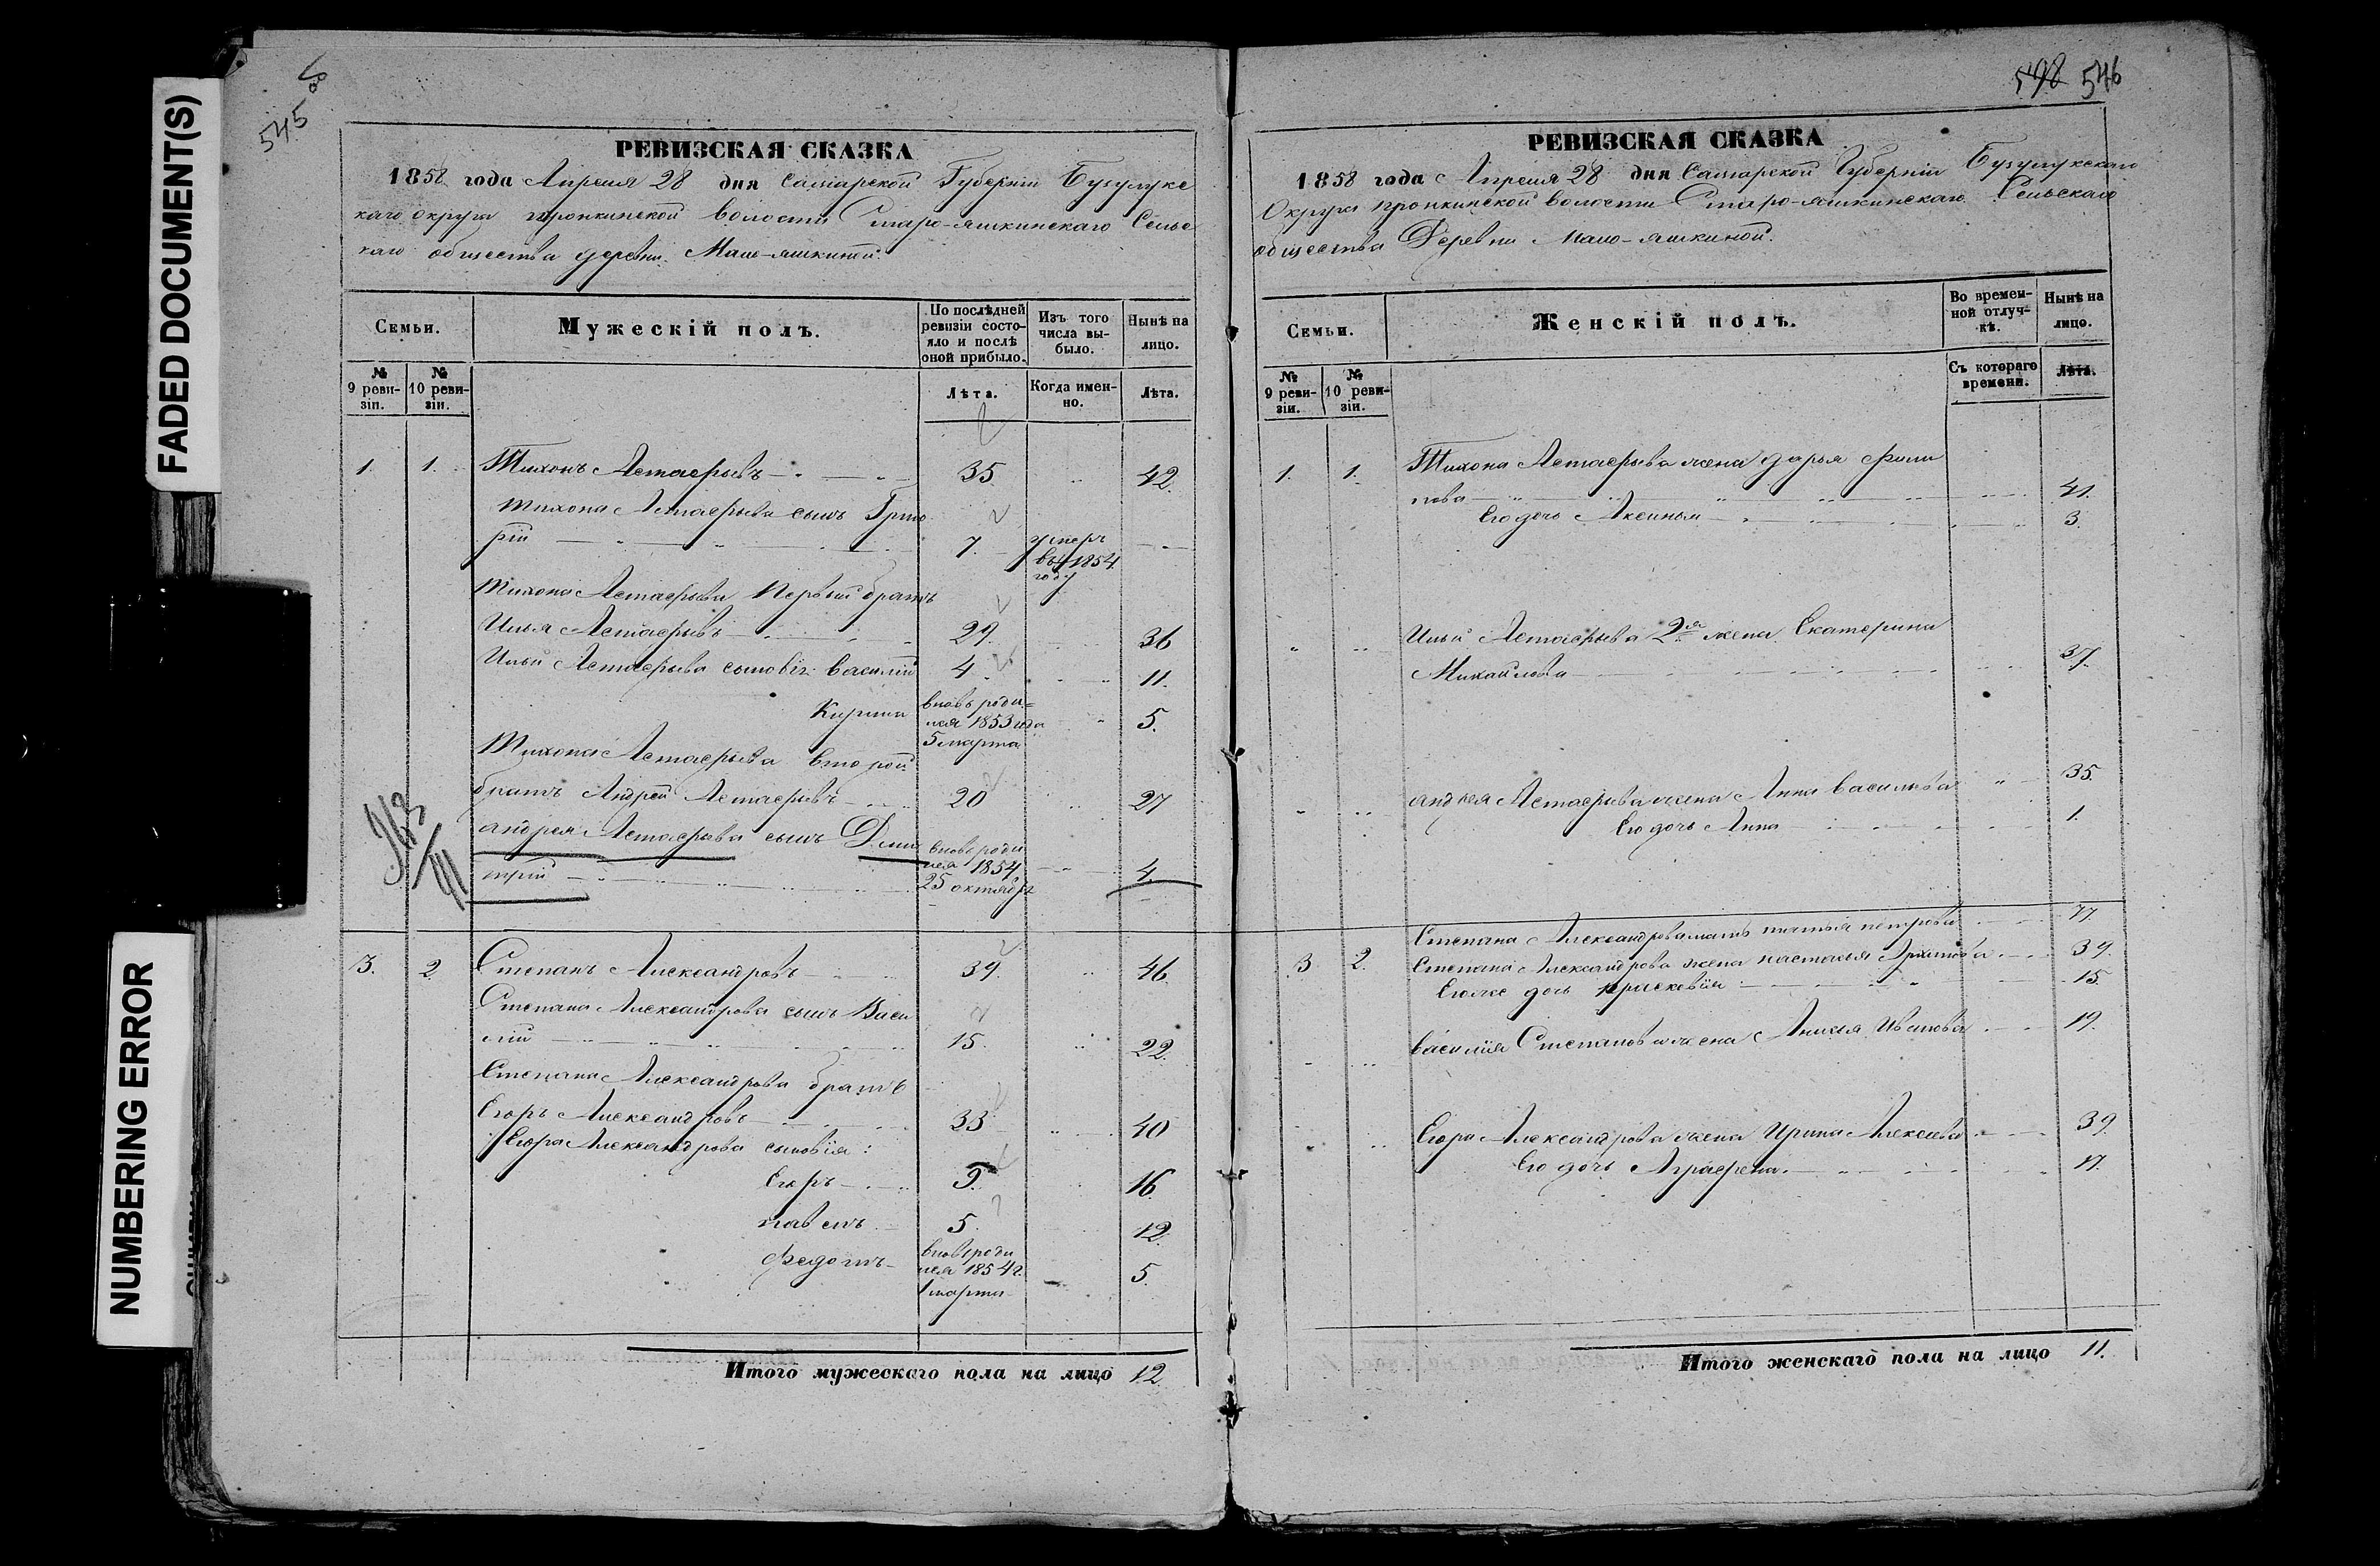 FADED DOCUMENT(S)
NUMBERING ERROR
545 об
РЕВИЗСКАЯ СКАЗКА
1858 года Апреля 28 дня Самарской Губернии Бузулукс
каго округа пронкинской волости Старо-яшкинскаго Сельс
каго общества деревни Мало-яшкиной.
Семьи.
Мужескій полъ.
По послѣдней ревизіи состояло и послѣ оной прибыло.
Изъ того числа выбыло.
Нынѣ на лицо.
№ 9 ревизіи.
№ 10 ревизіи.
Лѣта.
Когда именно.
Лѣта.
1. 1. Тихонъ Астафьевъ 35. 42.
Тихона Астафьева сынъ Григо
рій 7. умеръ въ 1854 году
Тихона Астафьева Первый братъ
Илья Астафьевъ 29. 36
Ильи Астафьева сыновья Василій 4. 11.
Кирила вновь родился 1853 года 5 марта 5.
Тихона Астафьева второй
братъ Андрей Астафьевъ 20 27
андрея Астафьева сынъ Дми
трій вновь родился 1854 25 октября 4.
3. 2. Степанъ Александровъ 39. 46.
Степана Александрова сынъ Васи
лій 15. 22.
Степана Александрова братъ
Егоръ Александровъ 33 40
Егора Александрова сыновья:
Егоръ 9. 16.
павелъ 5. 12.
Федотъ вновь родился 1854 г. 1 марта 5.
Итого мужескаго пола на лицо 12.
598 546
РЕВИЗСКАЯ СКАЗКА
1858 года Апреля 28 дня Самарской Губерніи Бузулукскаго
Округа пронкинской волости Старо-яшкинскаго Сельскаго
общества Деревни Мало-яшкиной.
Семьи.
Женскій полъ.
Во временной отлучкѣ.
Нынѣ на лицо.
№ 9 ревизіи.
№ 10 ревизіи.
Съ котораго времени.
Лѣта.
1. 1. Тихона Астафьева жена дарья Фили
пова 41.
Его дочь Аксинья 3.
Ильи Астафьева 2я жена Екатерина
Михайлова 37.
андрея Астафьева жена Анна васильева 35.
Его дочь Анна 1.
Степана Александрова мать татья петрова 77.
3 2. Степана Александрова жена настасья Архипова 39.
Егоже дочь прасковія 15.
василія Степанова жена Ивановa 19.
Егора Александрова жена Ирина Алексеева 39.
Его дочь Аграфена. 17.
Итого женскаго пола на лицо 11.